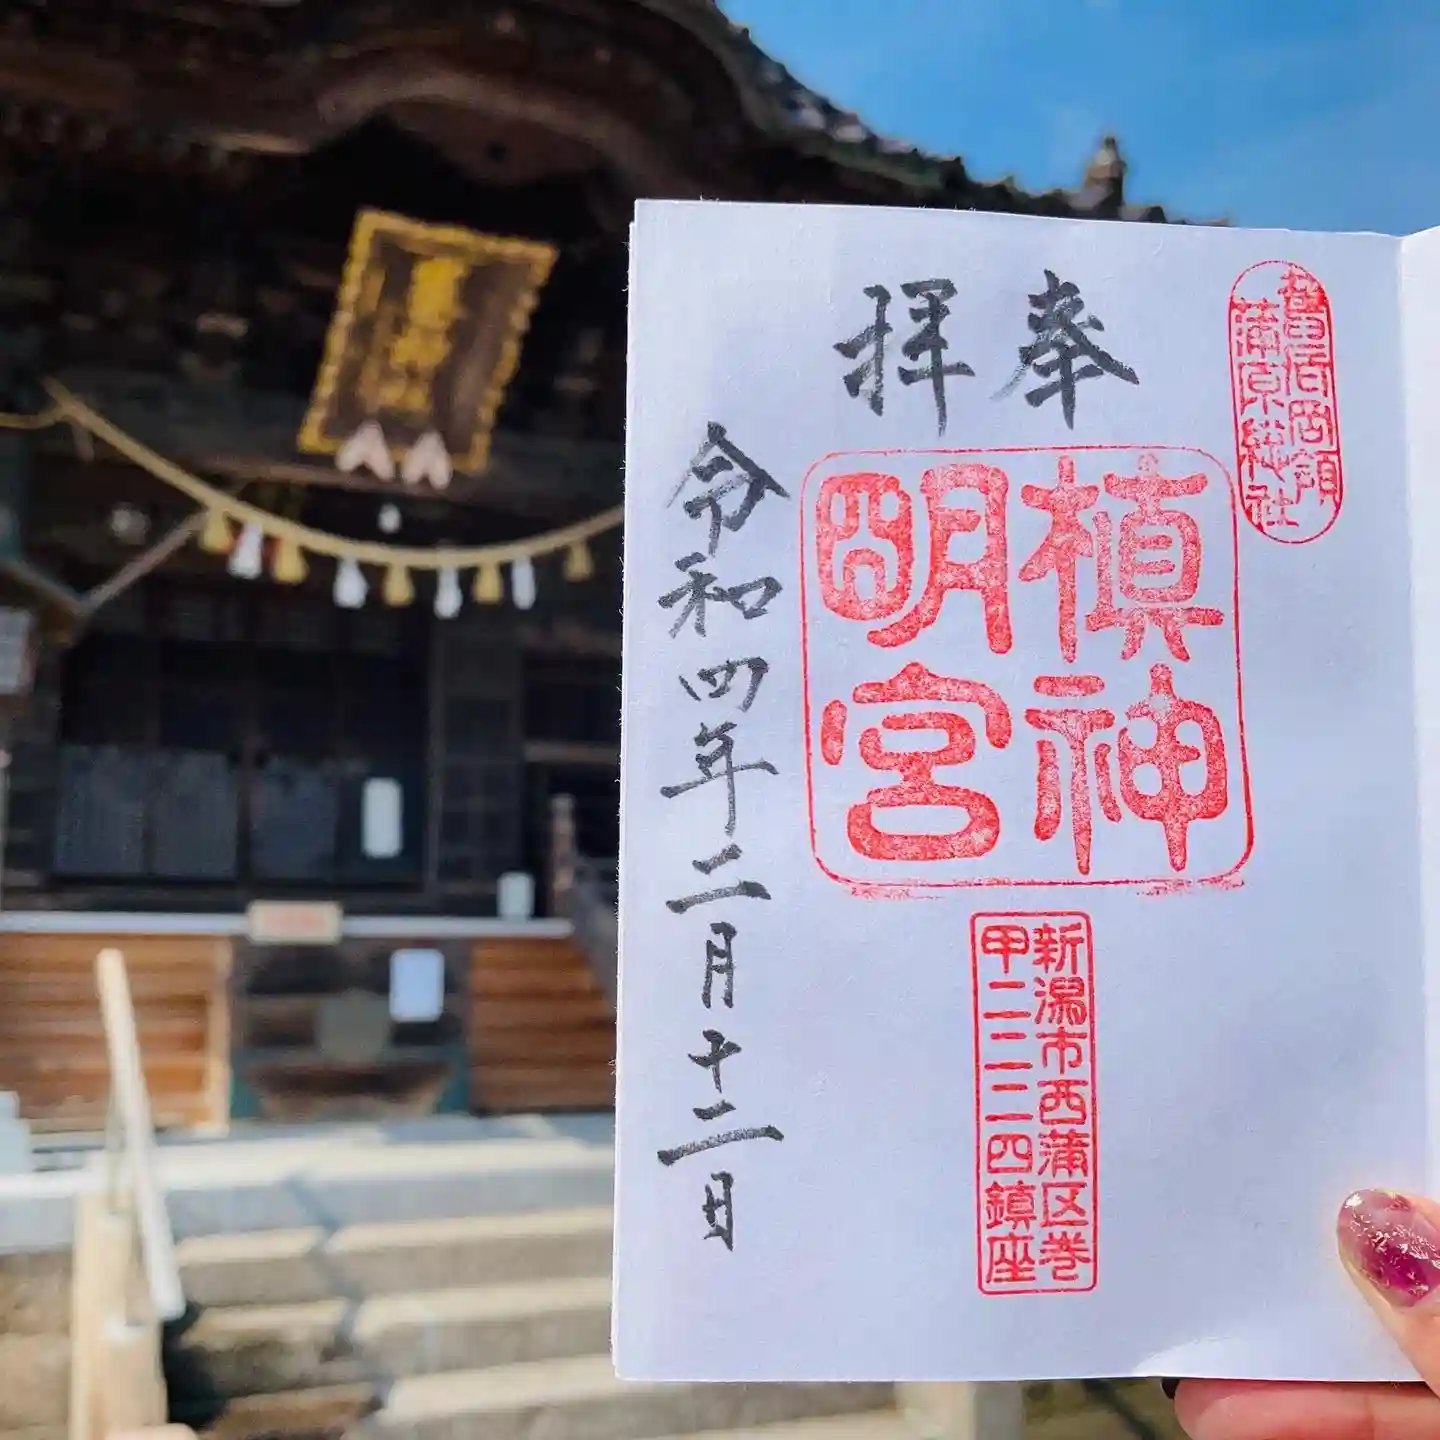 奉拝
槙神
明宮
新潟市西蒲区巻
甲二二二四鎮座
令和四年二月十二日
蒲原総社